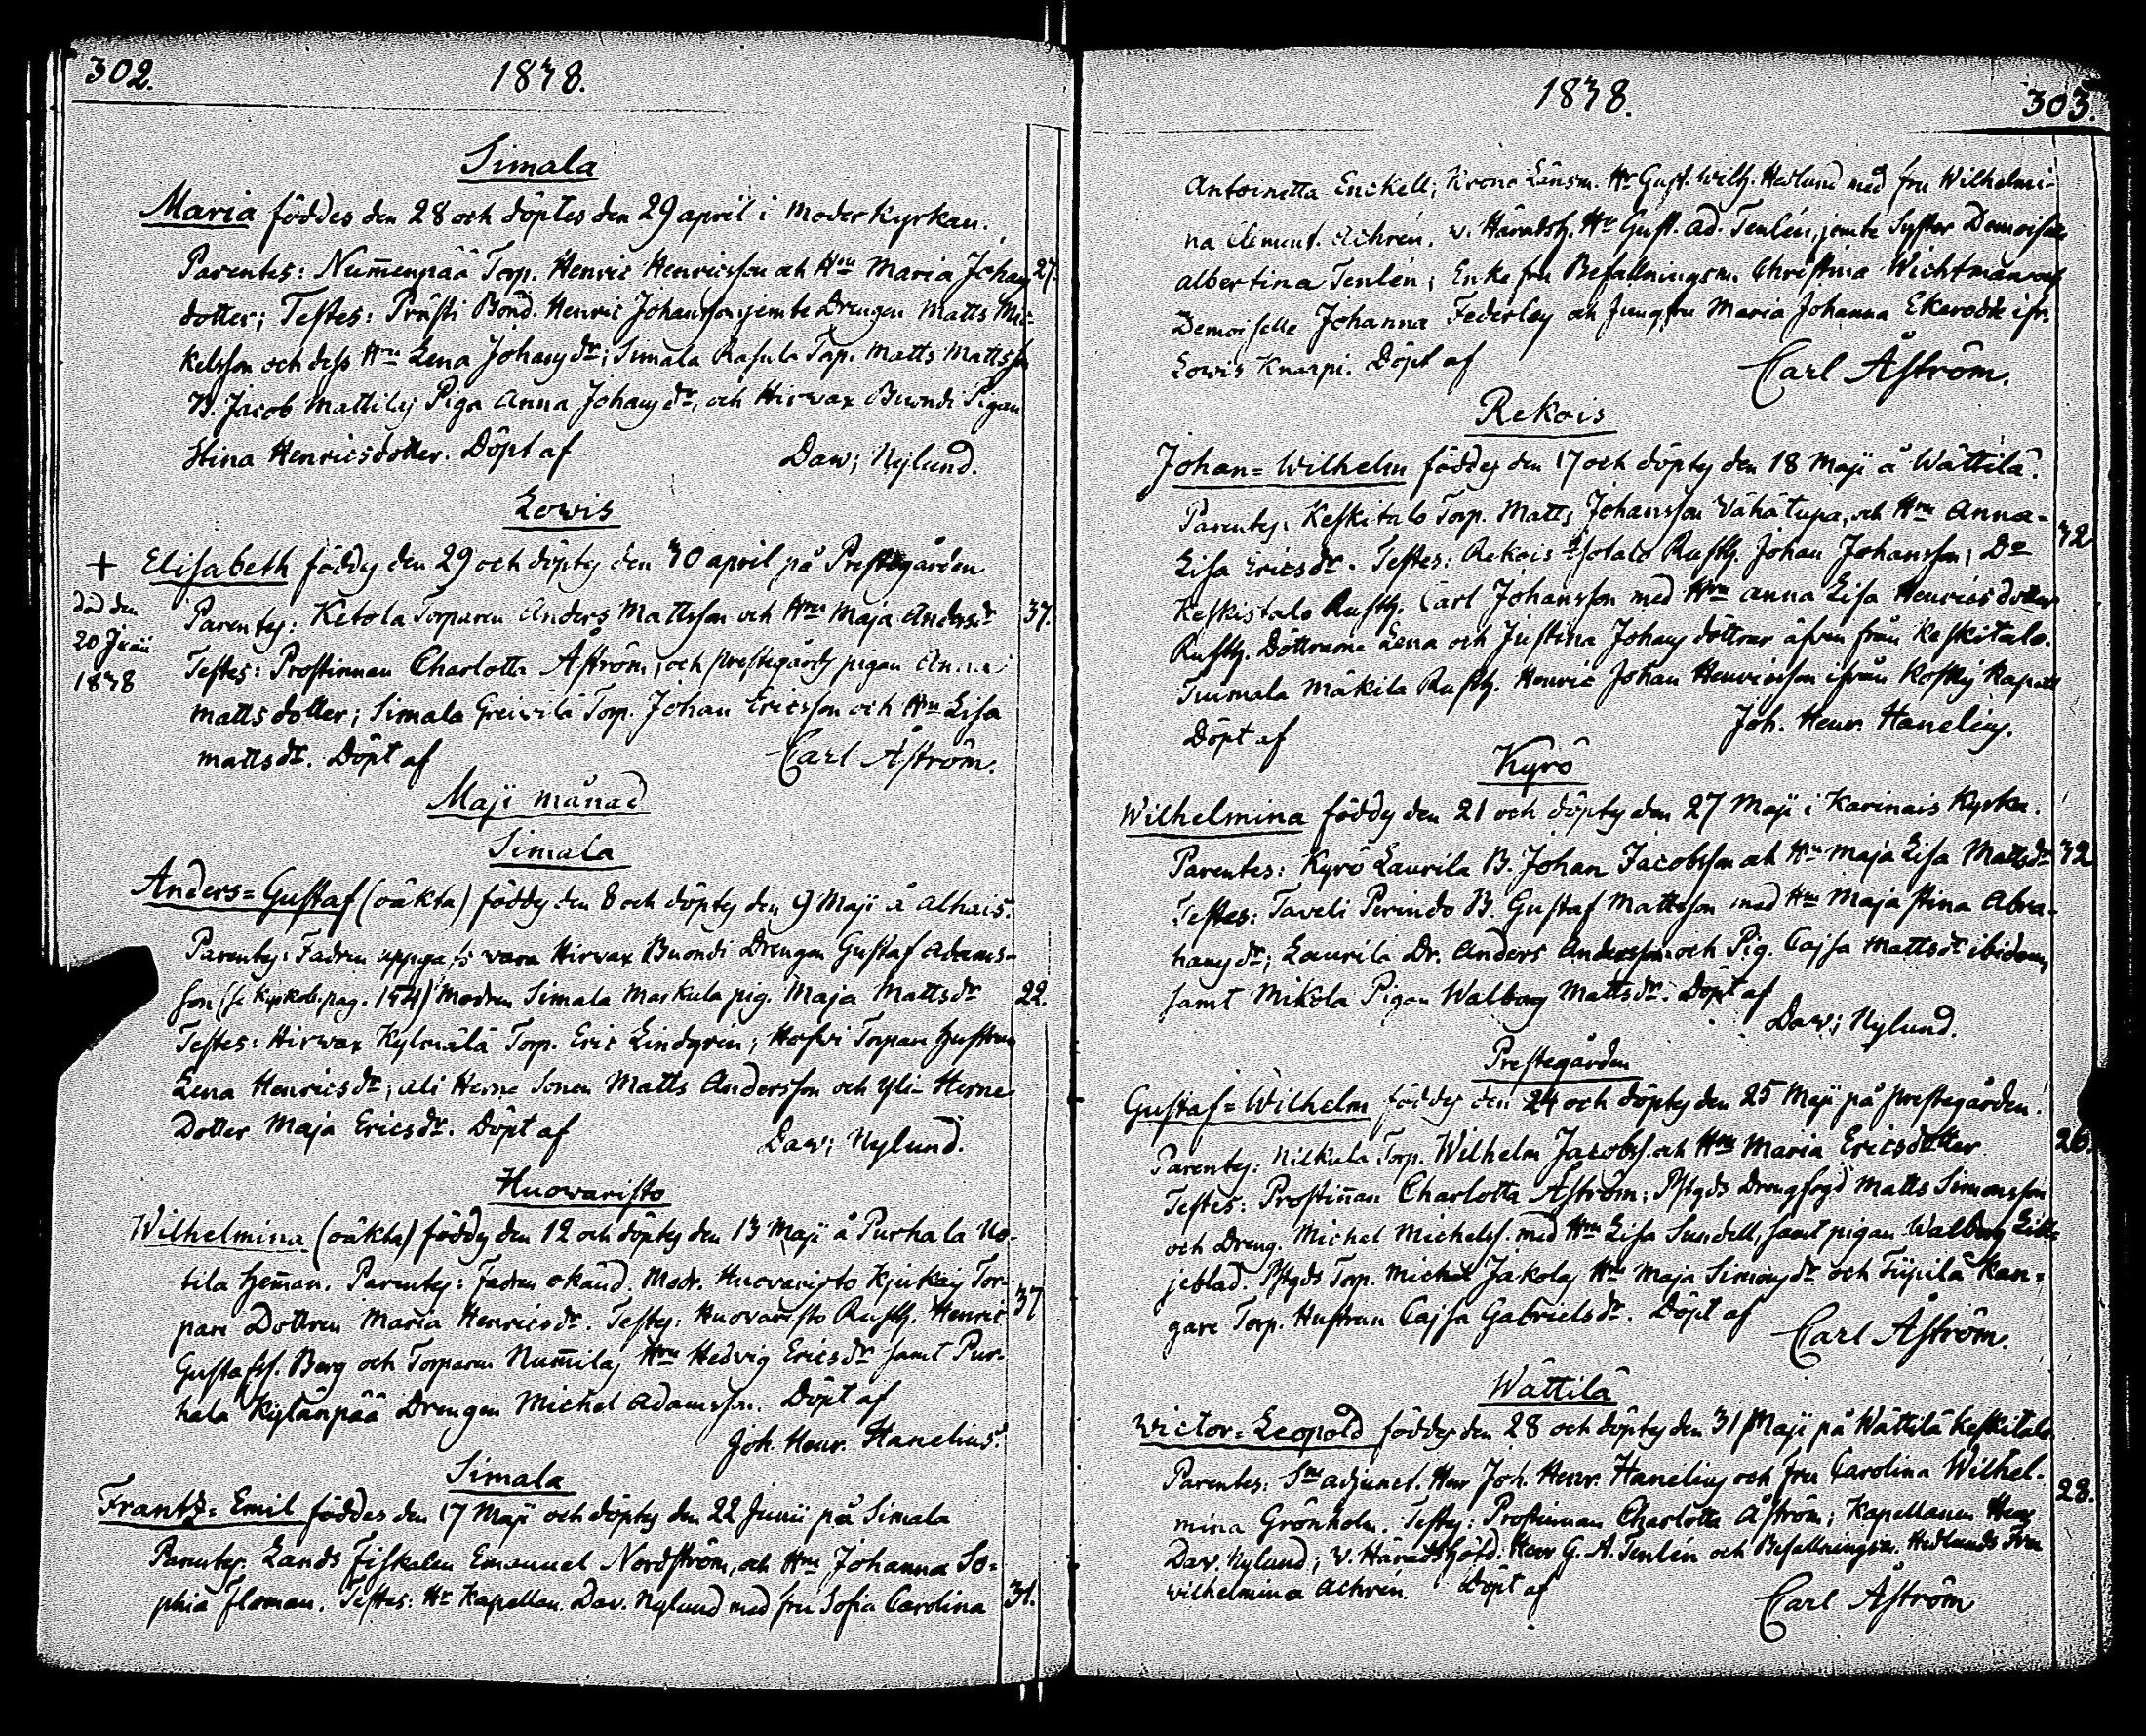 302.
1838.
Simala
Maria föddes den 28 och döptes den 29 april i Moder Kyrkan.
Parentes: Num̄enpää Torp. Henric Henricsson och Hru Maria Johans 27.
dotter; Testes: Prästi Bond. Henric Johansson jemte Drengen Matts Mi-
kelsson och dess Hru Lena Johansdr; Simala Rasula Torp. Matts Mattsson
B. Jacob Mattilas Piga Anna Johansdr, och Hirwax Buondi Pigan
Stina Henricsdotter. Döpt af Dav: Nylund.
Lowis
+ Elisabeth föddes den 29 och döptes den 30 april på Prestegården
död den
20 Junii
1838
Parentes: Ketola Torparen Anders Mattsson och Hru Maja Andersdr 37.
Testes: Prostinnan Charlotta Åström, och prestegårds pigan Anna
Mattsdotter; Simala Greivilä Torp. Johan Ericsson och Hru Lisa
Mattsdr. Döpt af Carl Åström.
Maji månad
Simala
Anders=Gustaf (oäkta) föddes den 8 och döptes den 9 Maji å Alhais.
Parentes: Fadren uppga,s vara Hirvax Buondi Drengen Gustaf Adams-
son (se Kyrkob. pag. 154) Modren Simala Maskula pig. Maja Mattsdr 22.
Testes: Hirwax Kylmälä Torp. Eric Lindgren; Torpare hustrun
Lena Henricsdr; Ali Herne Sonen Matts Andersson och Yli-Herne
Dotter Maja Ericsdr. Döpt af Dav: Nylund.
Huovaristo
Wilhelmina (oäkta) föddes den 12 och döptes den 13 Maji å Purhala Uo-
tila hem̄an. Parentes: Fadren okänd. Modr. Huovaristo Kjukas Tor-
pare Dottren Maria Henricsdr. Testes: Huovaristo Rusth. Henric 37
Gustafss. Berg och Torparen Num̄ilas Hru Hedvig Ericsdr samt Pur-
hala Kylänpää Drengen Michel Adamsson. Döpt af
Joh. Henr. Hanelius.
Simala
Frantz=Emil föddes den 17 Maji och döptes den 22 Junii på Simala
Parentes: Lands Fiskalen Emanuel Nordström, och Hru Johanna So-
phia Floman. Testes: Hr Kapellan. Dav. Nylund med fru Sofia Carolina 31.
1838.
303.
Antoinetta Enckell; Krono Länsm. Hr Gust. Wilh. Hedlund med fru Wilhelmi-
na Clement. Achrén. v. Häradsh. Hr Gust. Ad. Tenlén, jemte Syster Demoiselle
Albertina Tenlén; Enke fru Befallningsm. Christina Wichtman och
Demoiselle Johanna Federley och Jungfru Maria Johanna Ekerodde ifr.
Lowis Knaapi. Döpt af Carl Åström.
Rekois
Johan=Wilhelm föddes den 17 och döptes den 18 Maji å Wättilä.
Parentes: Keskitalo Torp. Matts Johansson Vähätupa, och Hru Anna-
Lisa Ericsdr. Testes: Rekois Isotalo Rusth. Johan Johansson; Do 32
Keskistalo Rusth. Carl Johansson med Hru Anna Lisa Henricsdotter
Rusth. Döttrarne Lena och Justina Johans döttrar äfven från Keskitalo.
Tuimala Mäkilä Rusth. Henric Johan Henricsson ifrån Koskis Kapell
Döpt af Joh. Henr. Hanelius.
Kyrö
Wilhelmina föddes den 21 och döptes den 27 Maji i Karinais Kyrka.
Parentes: Kyrö Laurila B. Johan Jacobsson och Hru Maja Lisa Mattsdr 32
Testes: Taveli Perindo B. Gustaf Mattsson med Hru Maja Stina Abra-
hamsdr; Laurila Dr. Anders Andersson och Pig. Cajsa Mattsdr ibidem,
samt Mikola Pigan Walborg Mattsdr. Döpt af
Dav: Nylund.
Prestegården
Gustaf=Wilhelm föddes den 24 och döptes den 25 Maji på prestegården.
Parentes: Nilkula Torp. Wilhelm Jacobss. och Hru Maria Ericsdotter 26.
Testes: Prostin̄an Charlotta Åström; Pstgds Drengfogd Matts Simonsson
och Dreng. Michel Michelss. med Hru Lisa Sundell, samt pigan Walborg Lill-
jeblad. Pstgds Torp. Michel Jakolas Hru Maja Simonsdr och Tiipilä Kan-
gare Torp. Hustrun Cajsa Gabrielsdr. Döpt af Carl Åström.
Wättilä
Wictor=Leopold föddes den 28 och döptes den 31 Maji på Wättilä Keskitalo
Parentes: Sne adjunct. Herr Joh. Henr. Hanelius och fru Carolina Wilhel- 28.
mina Grönholm. Testes: Prostinnan Charlotta Åström; Kapellanen Herr
Dav. Nylund; v. Häradshöfd. Herr G. A. Tenlén och Befallningsm. Hedlunds Fru
Wilhelmina Achrén. Döpt af Carl Åström